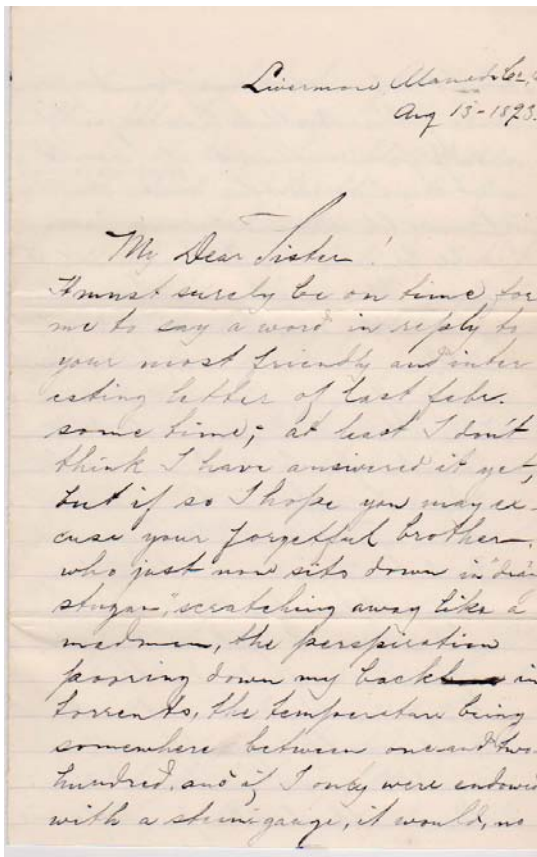 Livermore Alameda Co.,
Aug 13 - 1893.
My Dear Sister!
It must surely be on time for
me to say a word in reply to
your most friendly and inter
esting letter of last febr.
some time; at least I don't
think I have answered it yet,
but if so I hope you may ex-
cuse your forgetful brother.
who just now sits down in
stugan", scratching away like a
madman, the perspiration
pooring down my back in
torrents, the temperature being
somewhere between one and two
hundred, and if I only were endowed
with a steamgauge, it would, no